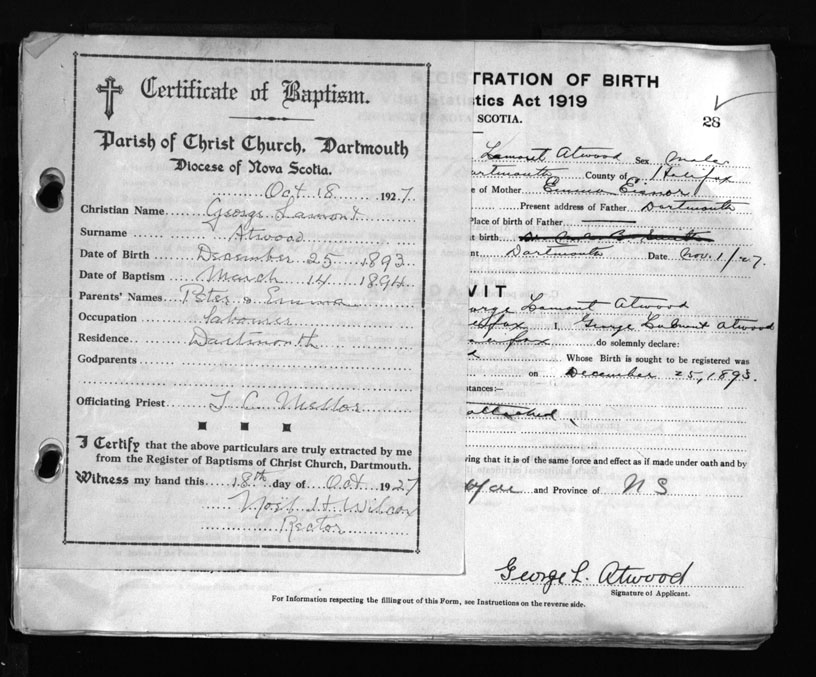 Certificate of Baptism.
Parish of Christ Church, Dartmouth
Diocese of Nova Scotia.
Oct 18 1927
Christian Name George Lamont
Surname Atwood
Date of Birth December 25 1893
Date of Baptism March 14 1894
Parents' Names Peter & Emma
Occupation Labourer
Residence Dartmouth
Godparents
Officiating Priest T C Mellor
I Certify that the above particulars are truly extracted by me
from the Register of Baptisms of Christ Church, Dartmouth.
Witness my hand this 18th day of Oct 1927
Noel H Wilcox
Rector
TRATION OF BIRTH
tics Act 1919
SCOTIA.
28
Lamont Atwood Sex Male
Dartmouth County of Halifax
e of Mother Emma
Present address of Father Dartmouth
Place of birth of Father
t birth
nt Dartmouth Date Nov. 1/27.
VIT
orge Lamont Atwood
lifax I, George Lamont Atwood
lifax do solemnly declare:
d Whose Birth is sought to be registered was
on December 25, 1893.
stances:—
attached
ving that it is of the same force and effect as if made under oath and by
and Province of N S
George L. Atwood
Signature of Applicant.
For Information respecting the filling out of this Form, see Instructions on the reverse side.